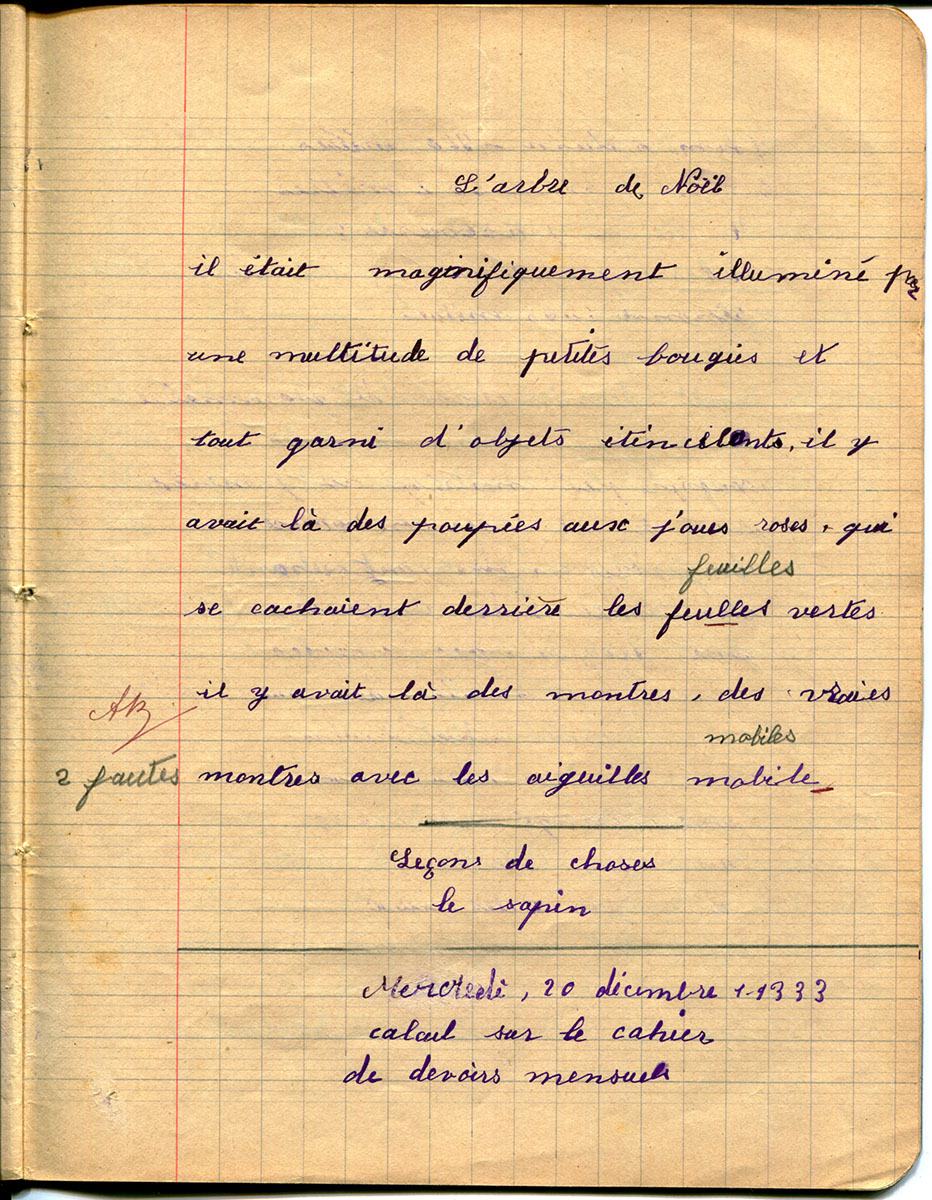 L'arbre de Noël
il était maginifiquement illuminé par
une multitude de petites bougies et
tout garni d'objets étincelants, il y
avait là des poupées aux joues roses, qui
feuilles
se cachaient derrière les feulles vertes
il y avait là des montres, des vraies
mobiles
2 fautes montres avec les aiguilles mobile
Leçons de choses
le sapin
Mercredi, 20 décembre 1933
calcul sur le cahier
de devoirs mensuels